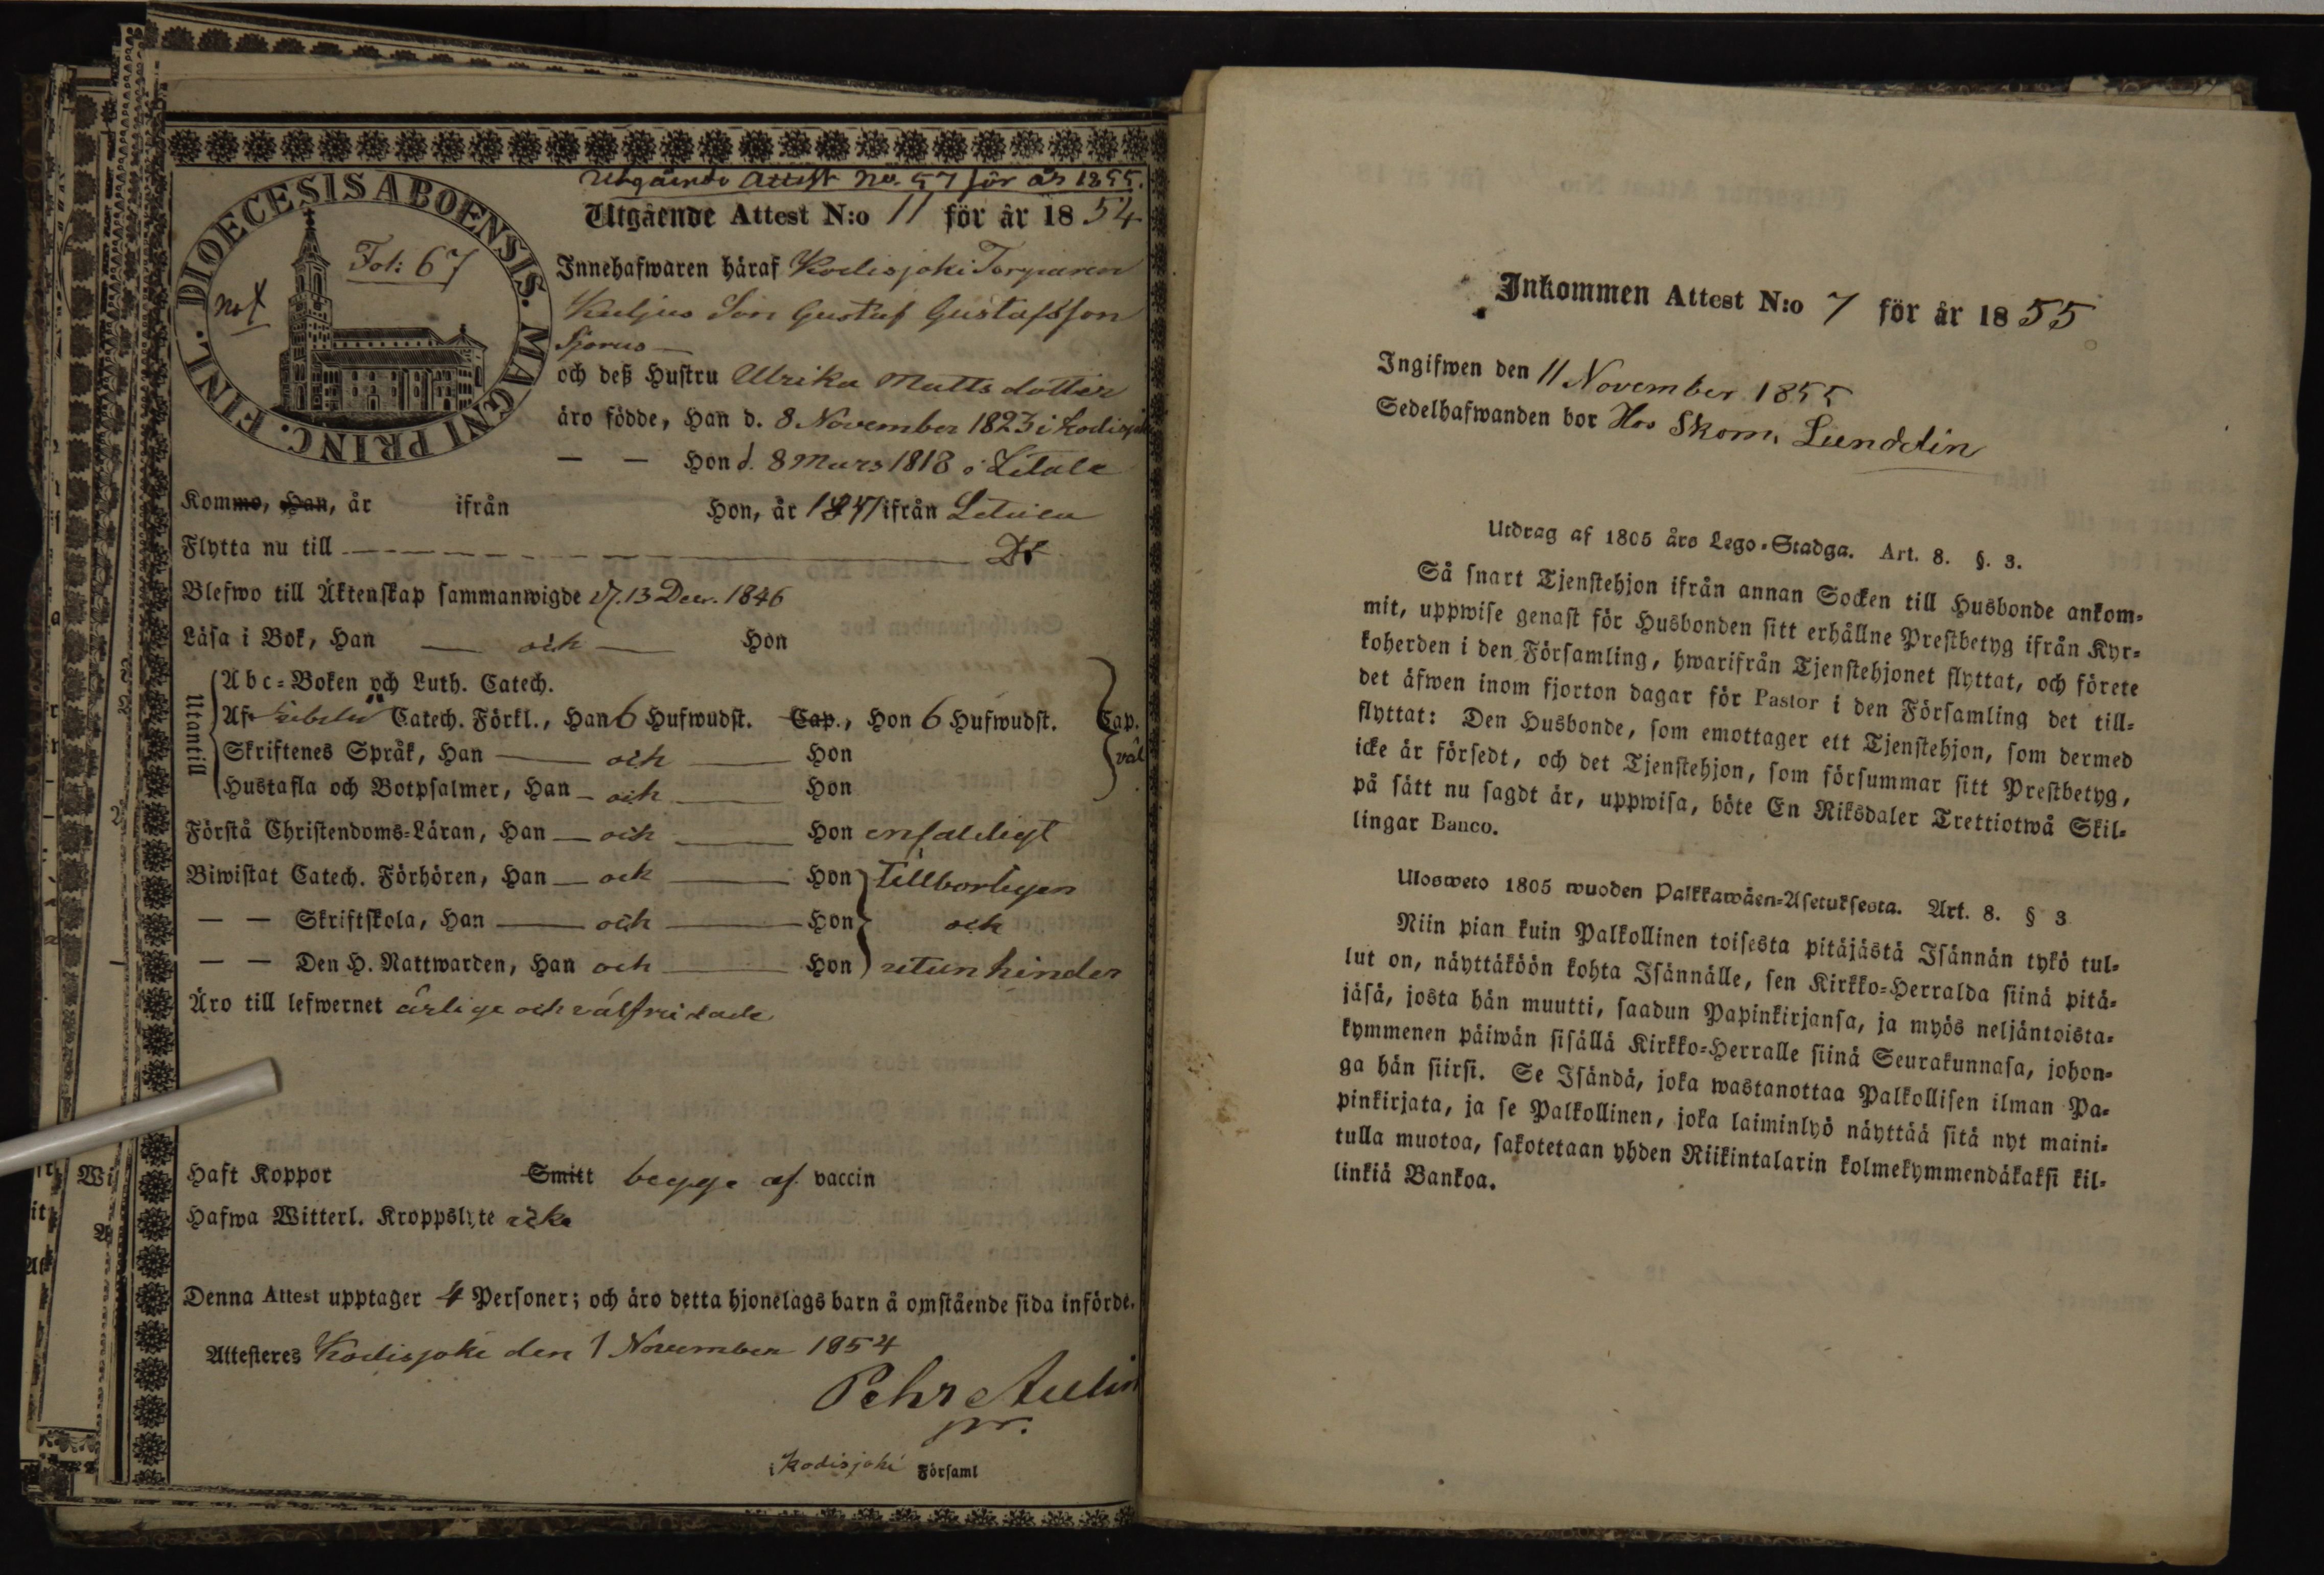 DIOECESIS ABOENSIS. MAGNI PRINC. FINL.
Fol: 67
Utgående Attest No. 57 för år 1855.
Utgående Attest N:o 11 för år 1854
Innehafwaren häraf Kodisjoki Torparen
Kuljus Son Gustaf Gustafsson
Sjorus —
och deß Hustru Ulrika Mattsdotter
äro födde, Han d. 8 November 1823 i Kodisjoki
— — Hon d. 8 Mars 1818 i Letala
Kommo, Han, år ifrån Hon, år 1847 ifrån
Flytta nu till
Blefwo till Äktenskap sammanwigde d. 13 Decr. 1846
Läsa i Bok, Han — och — Hon
Utantill
Abc-Boken och Luth. Catech.
Af Catech. Förkl., Han 6 Hufwudst. Cap., Hon 6 Hufwudst. Cap.
Skriftenes Språk, Han — och — Hon väl
Hustafla och Botpsalmer, Han — och — Hon
Förstå Christendoms-Läran, Han — och — Hon enfaldigt
Biwistat Catech. Förhören, Han — och — Hon tillbörligen
— — Skriftskola, Han — och — Hon och
— — Den H. Nattwarden, Han och — Hon utan hinder
Äro till lefwernet ärlige och välfrejdade
Haft Koppor Smitt begge af vaccin
Hafwa Witterl. Kroppslyte icke
Denna Attest upptager 4 Personer; och äro detta hjonelags barn å omstående sida införde.
Attesteres Kodisjoki den 1 November 1854
Pehr Aulin
pr.
i Kodisjoki Församl
Inkommen Attest N:o 7 för år 1855
Ingifwen den 11 November 1855
Sedelhafwanden bor Hos Skom. Lundelin
Utdrag af 1805 års Lego-Stadga. Art. 8. §. 3.
Så snart Tjenstehjon ifrån annan Socken till Husbonde ankom-
mit, uppwise genast för Husbonden sitt erhållne Prestbetyg ifrån Kyr-
koherden i den Församling, hwarifrån Tjenstehjonet flyttat, och förete
det äfwen inom fjorton dagar för Pastor i den Församling det till-
flyttat: Den Husbonde, som emottager ett Tjenstehjon, som dermed
icke är försedt, och det Tjenstehjon, som försummar sitt Prestbetyg,
på sätt nu sagdt är, uppwisa, böte En Riksdaler Trettiotwå Skil-
lingar Banco.
Ulosweto 1805 wuoden Palkkawäen-Asetuksesta. Art. 8. § 3
Niin pian kuin Palkollinen toisesta pitäjästä Isännän tykö tul-
lut on, näyttäköön kohta Isännälle, sen Kirkko-Herralda siinä pitä-
jäsä, josta hän muutti, saadun Papinkirjansa, ja myös neljäntoista-
kymmenen päiwän sisällä Kirkko-Herralle siinä Seurakunnasa, johon-
ga hän siirsi. Se Isändä, joka wastanottaa Palkollisen ilman Pa-
pinkirjata, ja se Palkollinen, joka laiminlyö näyttää sitä nyt maini-
tulla muotoa, sakotetaan yhden Riikintalarin kolmekymmendäkaksi kil-
linkiä Bankoa.